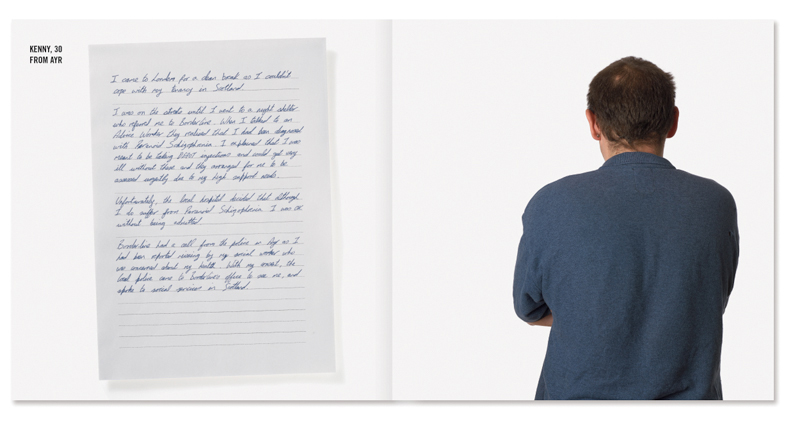 KENNY, 30
FROM AYR
I came to London for a clean break as I couldn't
cope with my tenancy in Scotland.
I was on the streets until I went to a night shelter
who referred me to Borderline. When I talked to an
Advice Worker they realised that I had been diagnosed
with Paranoid Schizophrenia. I explained that I was
meant to be taking injections and could get very
ill without these and they arranged for me to be
assessed urgently due to my high support needs.
Unfortunately, the local hospital decided that although
I do suffer from Paranoid Schizophrenia I was ok
without being admitted.
Borderline had a call from the police in Ayr as I
had been reported missing by my social worker who
was concerned about my health. With my consent, the
local police came to Borderline's office to see me, and
spoke to social services in Scotland.